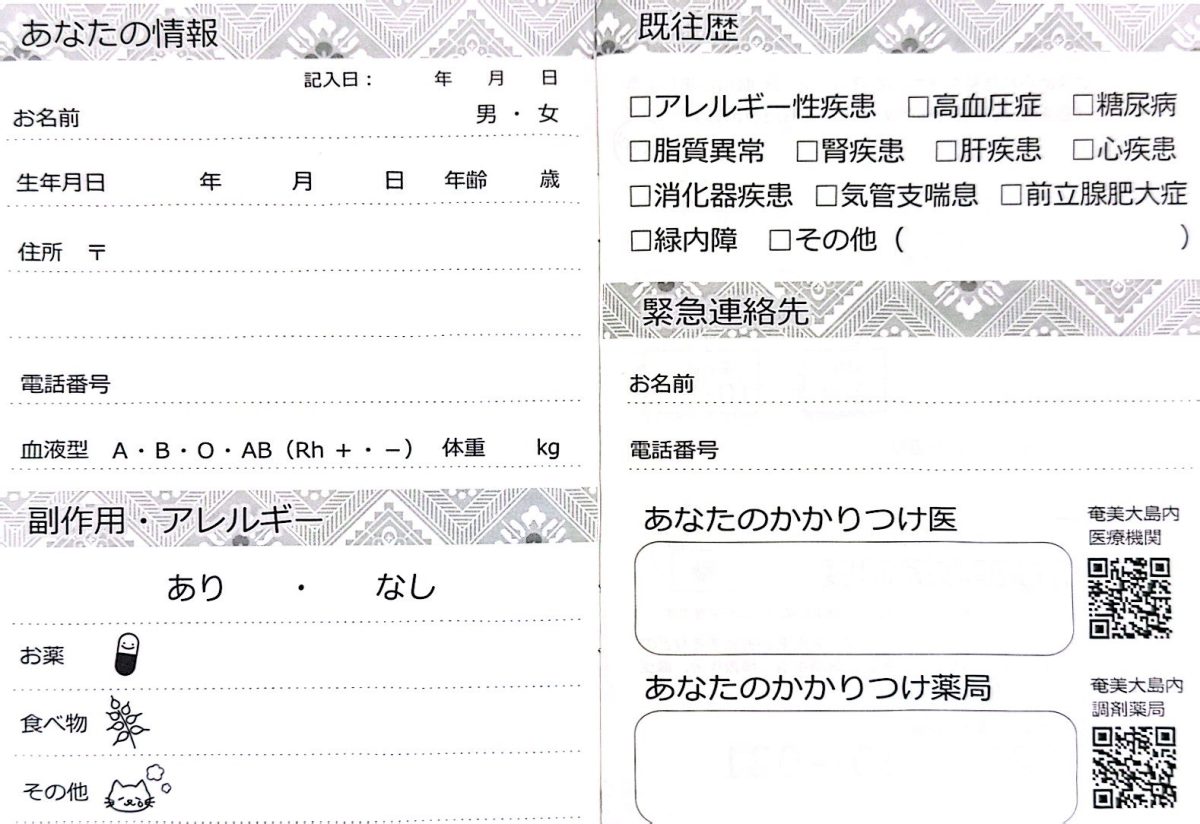 あなたの情報
記入日： 年 月 日
お名前 男 ・ 女
生年月日 年 月 日 年齢 歳
住所 〒
電話番号
血液型 A・B・O・AB（Rh ＋・－） 体重 kg
副作用・アレルギー
あり ・ なし
お薬
食べ物
その他
既往歴
□アレルギー性疾患 □高血圧症 □糖尿病
□脂質異常 □腎疾患 □肝疾患 □心疾患
□消化器疾患 □気管支喘息 □前立腺肥大症
□緑内障 □その他（ ）
緊急連絡先
お名前
電話番号
あなたのかかりつけ医
奄美大島内
医療機関
あなたのかかりつけ薬局
奄美大島内
調剤薬局